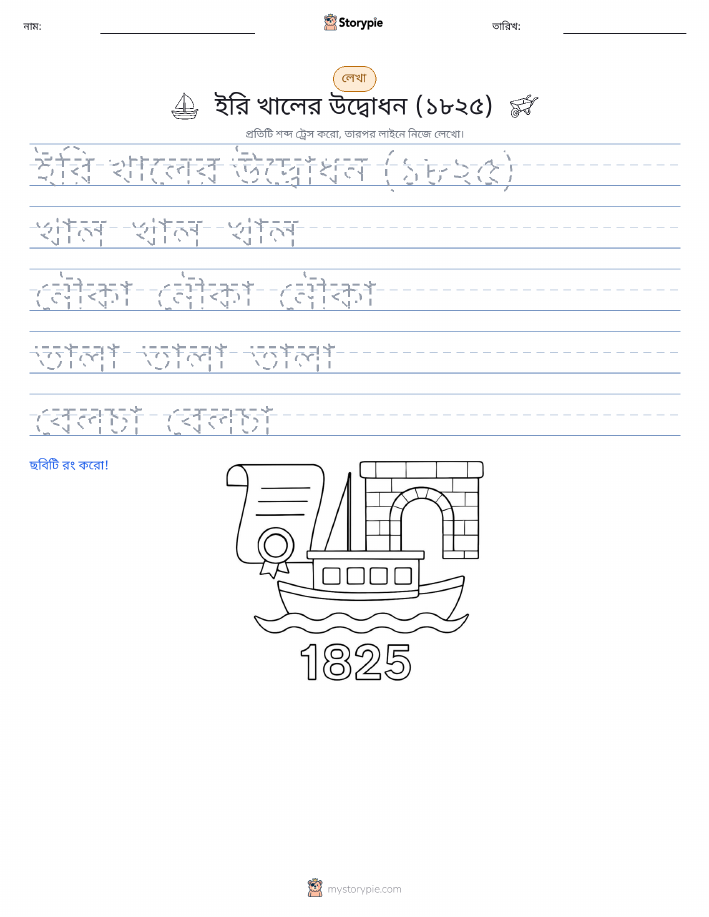 নাম:
Storypie
তারিখ:
লেখা
ইরি খালের উদ্বোধন (১৮২৫)
প্রতিটি শব্দ ট্রেস করো, তারপর লাইনে নিজে লেখো।
ইরি খালের উদ্বোধন (১৮২৫)
খাল খাল খাল
নৌকা নৌকা নৌকা
তালা তালা তালা
বেলচা বেলচা
ছবিটি রং করো!
1825
mystorypie.com